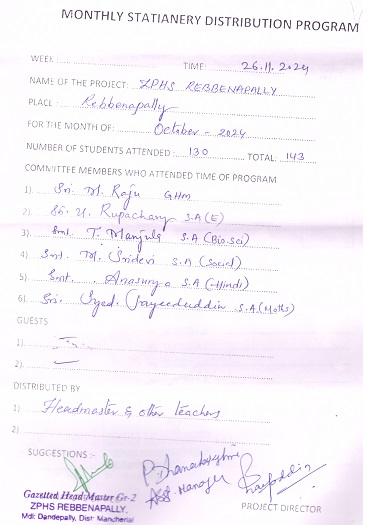 MONTHLY STATIANERY DISTRIBUTION PROGRAM
WEEK : TIME: 26.11.2024
NAME OF THE PROJECT: ZPHS REBBENAPALLY
PLACE : Rebbenapally
FOR THE MONTH OF: October - 2024
NUMBER OF STUDENTS ATTENDED : 130 TOTAL: 143
COMMITTEE MEMBERS WHO ATTENDED TIME OF PROGRAM
1). Sri. M. Raju GHM
2). Sri. U. Rupachary S.A (E)
3). Smt. T. Manjula S.A (Bio.sci)
4) Smt. M. Sridevi S.A (Social)
5). Smt. . Anasurya S.A (Hindi)
6). Sri. Syed. S.A. (Maths)
GUESTS
1).
2).
DISTRIBUTED BY
1) Headmaster & other teachers
2)
SUGGESTIONS :-
Asst. Manager
Gazetted Head Master Gr-2
ZPHS REBBENAPALLY,
Mdl: Dandepally, Dist: Mancherial
PROJECT DIRECTOR